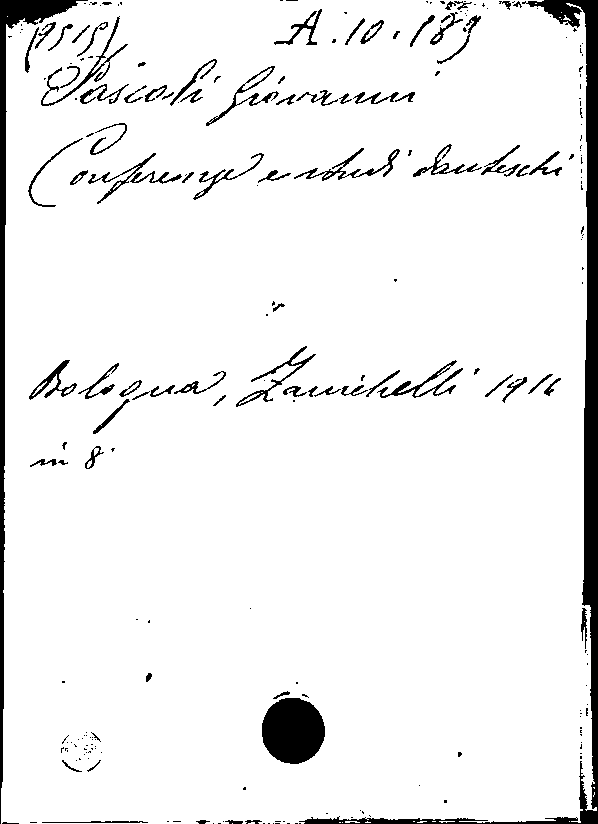 (9515) A.10.189
Pascoli Giovanni
Conferenze e studi danteschi
Bologna, Zanichelli 1916
in 8°